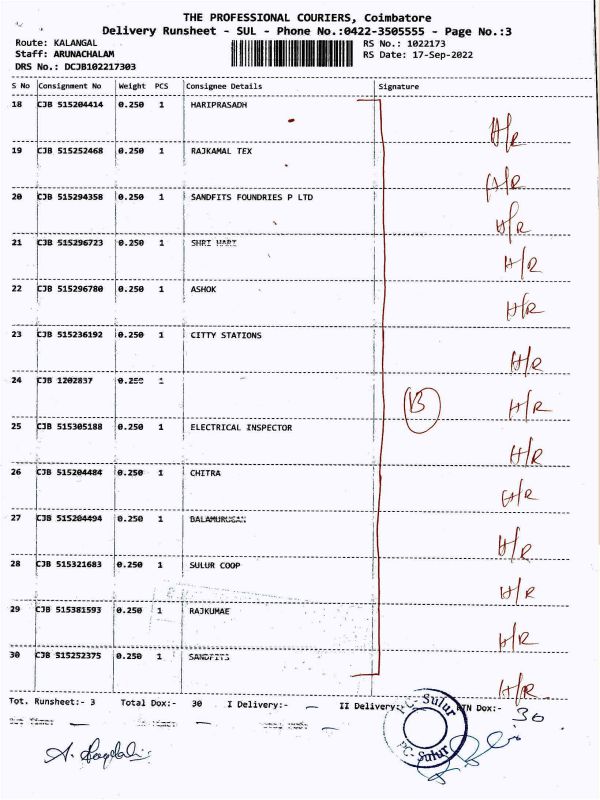 THE PROFESSIONAL COURIERS, Coimbatore
Delivery Runsheet - SUL - Phone No.:0422-3505555 - Page No.:3
Route: KALANGAL RS No.: 1022173
Staff: ARUNACHALAM RS Date: 17-Sep-2022
DRS No.: DCJB102217303
S No Consignment No Weight PCS Consignee Details Signature
18 CJB 515204414 0.250 1 HARIPRASADH H/R
19 CJB 515252468 0.250 1 RAJKAMAL TEX H/R
20 CJB 515294358 0.250 1 SANDFITS FOUNDRIES P LTD H/R
21 CJB 515296723 0.250 1 SHRI HARI H/R
22 CJB 515296780 0.250 1 ASHOK H/R
23 CJB 515236192 0.250 1 CITTY STATIONS H/R
24 CJB 1202837 0.250 1 B H/R
25 CJB 515305188 0.250 1 ELECTRICAL INSPECTOR H/R
26 CJB 515204484 0.250 1 CHITRA H/R
27 CJB 515204494 0.250 1 BALAMURUGAN H/R
28 CJB 515321683 0.250 1 SULUR COOP H/R
29 CJB 515381593 0.250 1 RAJKUMAE H/R
30 CJB 515252375 0.250 1 SANDFITS H/R
Tot. Runsheet:- 3 Total Dox:- 30 I Delivery:- — II Delivery:- RTN Dox:- 30
PC-Sulur
PC-Sulur